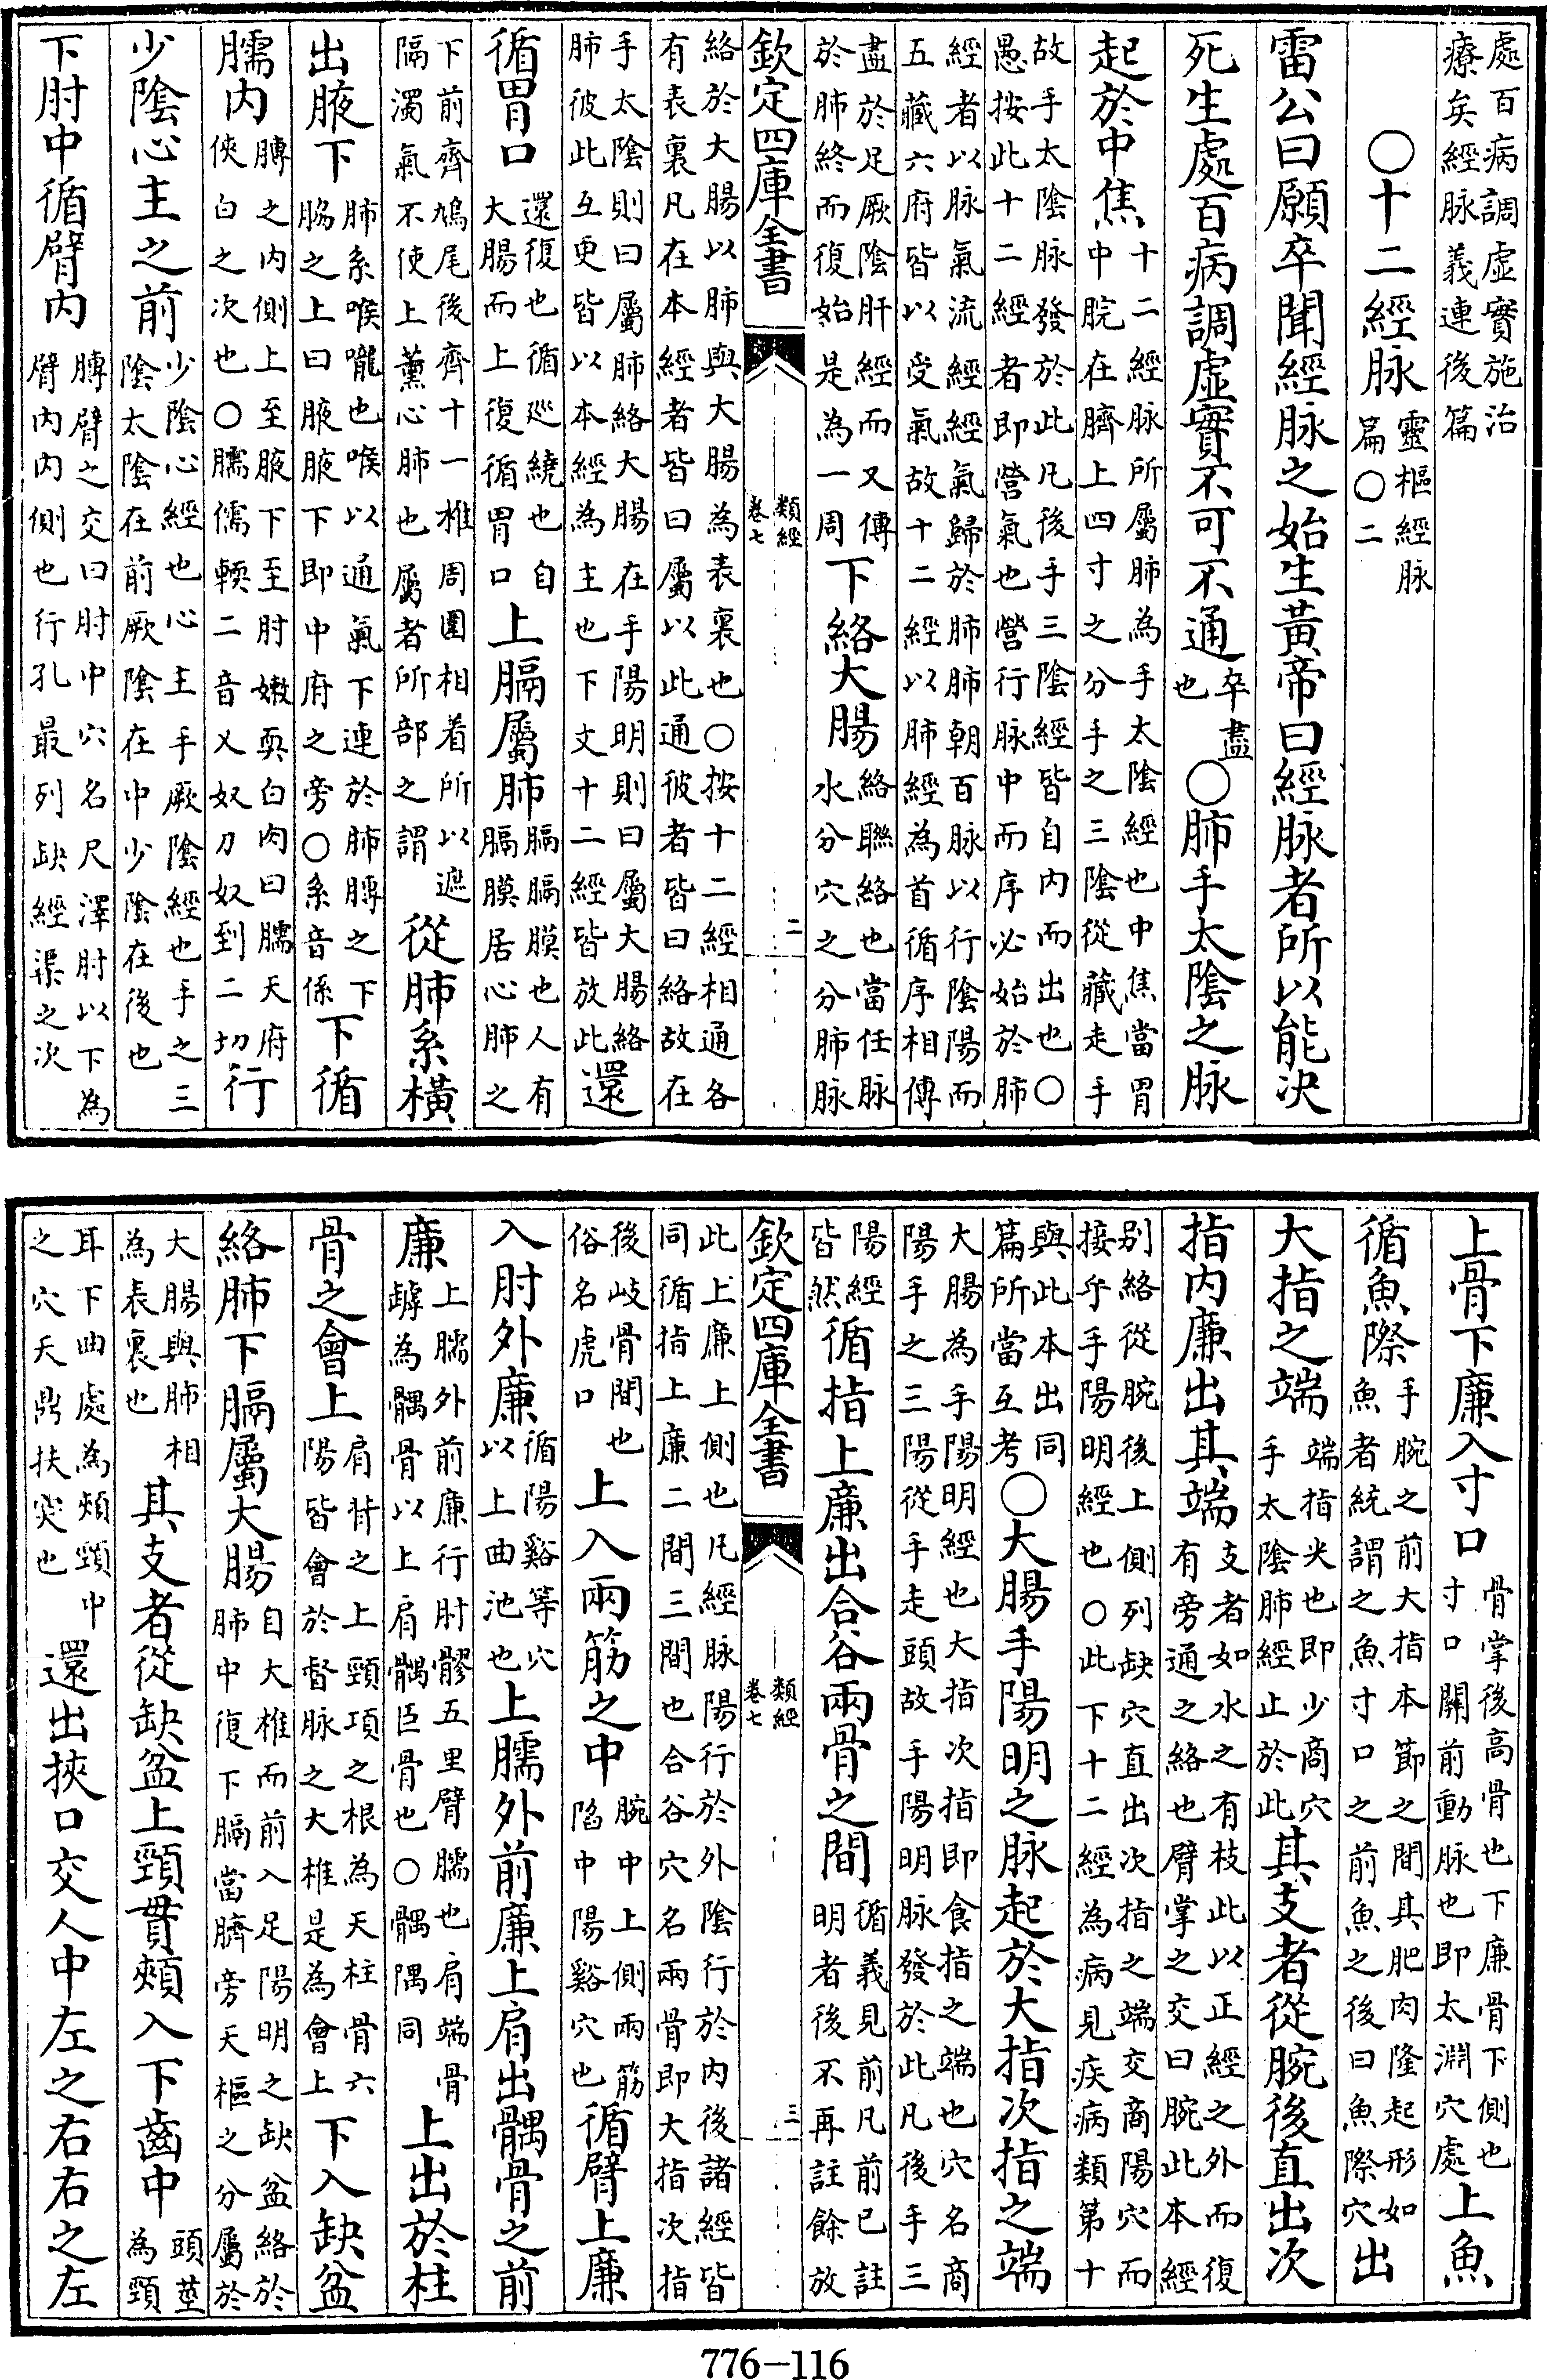 處百病調虚實施治
療矣經脉義連後篇
〇十二經脉靈樞經脉篇〇二
雷公曰願卒聞經脉之始生黃帝曰經脉者所以能决
死生處百病調虚實不可不通卒盡也〇肺手太陰之脉
起於中焦十二經脉所屬肺為手太陰經也中焦當胃中脘在臍上四寸之分手之三陰從藏走手
故手太陰脉發於此凡後手三陰經皆自内而出也〇
愚按此十二經者即營氣也營行脉中而序必始於肺
經者以脉氣流經經氣歸於肺肺朝百脉以行陰陽而
五藏六府皆以受氣故十二經以肺經為首循序相傳
盡於足厥陰肝經而又傳於肺終而復始是為一周下絡大腸絡聯絡也當任脉水分穴之分肺脉
欽定四庫全書 類經 卷七 二
絡於大腸以肺與大腸為表裏也〇按十二經相通各
有表裏凡在本經者皆曰屬以此通彼者皆曰絡故在
手太陰則曰屬肺絡大腸在手陽明則曰屬大腸絡肺彼此互更皆以本經為主也下文十二經皆放此還
循胃口還復也循廵繞也自大腸而上復循胃口上膈屬肺膈膈膜也人有膈膜居心肺之
下前齊鳩尾後齊十一椎周圍相着所以遮隔濁氣不使上薰心肺也屬者所部之謂從肺系橫
出腋下肺系喉嚨也喉以通氣下連於肺膊之下脇之上曰腋腋下即中府之旁〇系音係下循
臑内膊之内側上至腋下下至肘嫩耎白肉曰臑天府俠白之次也〇臑儒輭二音又奴刀奴到二切行
少陰心主之前少陰心經也心主手厥陰經也手之三陰太陰在前厥陰在中少陰在後也
下肘中循臂内膊臂之交曰肘中穴名尺澤肘以下為臂内内側也行孔最列缺經渠之次
上骨下廉入寸口骨掌後高骨也下廉骨下側也寸口關前動脉也即太淵穴處上魚
循魚際手腕之前大指本節之間其肥肉隆起形如魚者統謂之魚寸口之前魚之後曰魚際穴出
大指之端端指尖也即少商穴手太陰肺經止於此其支者從腕後直出次
指内廉出其端支者如水之有枝此以正經之外而復有旁通之絡也臂掌之交曰腕此本經
别絡從腕後上側列缺穴直出次指之端交商陽穴而
接乎手陽明經也〇此下十二經為病見疾病類第十
與此本出同篇所當互考〇大腸手陽明之脉起於大指次指之端
大腸為手陽明經也大指次指即食指之端也穴名商
陽手之三陽從手走頭故手陽明脉發於此凡後手三
陽經皆然循指上廉出合谷兩骨之間循義見前凡前已註明者後不再註餘放
欽定四庫全書 類經 卷七 三
此上廉上側也凡經脉陽行於外陰行於内後諸經皆
同循指上廉二間三間也合谷穴名兩骨即大指次指
後岐骨間也俗名虎口上入兩筋之中腕中上側兩筋陷中陽谿穴也循臂上廉
入肘外廉循陽谿等穴以上曲池也上臑外前廉上肩出髃骨之前
廉上臑外前廉行肘髎五里臂臑也肩端骨罅為髃骨以上肩髃巨骨也〇髃隅同上出於柱
骨之會上肩背之上頸項之根為天柱骨六陽皆會於督脉之大椎是為會上下入缺盆
絡肺下膈屬大腸自大椎而前入足陽明之缺盆絡於肺中復下膈當臍旁天樞之分屬於
大腸與肺相為表裏也其支者從缺盆上頸貫頰入下齒中頭莖為頸
耳下曲處為頰頸中之穴天鼎扶突也還出挾口交人中左之右右之左
776-116